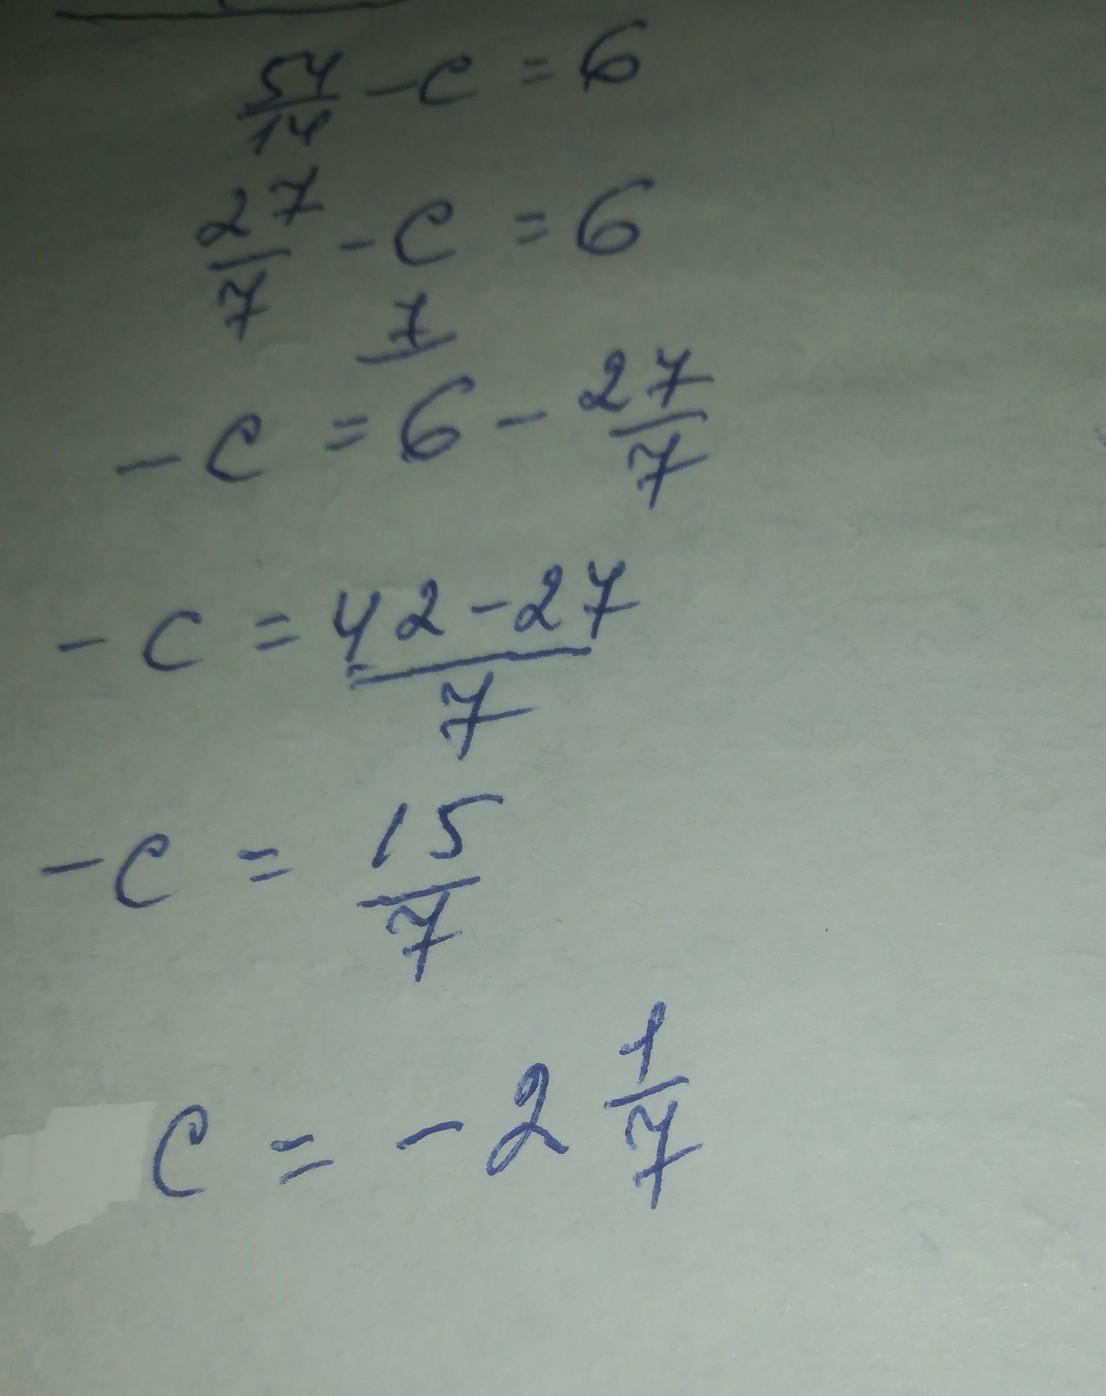 54/14 - c = 6
27/7 - c = 6
-c = 6 7/ - 27/7
-c = 42-27/7
-c = 15/7
c = -2 1/7